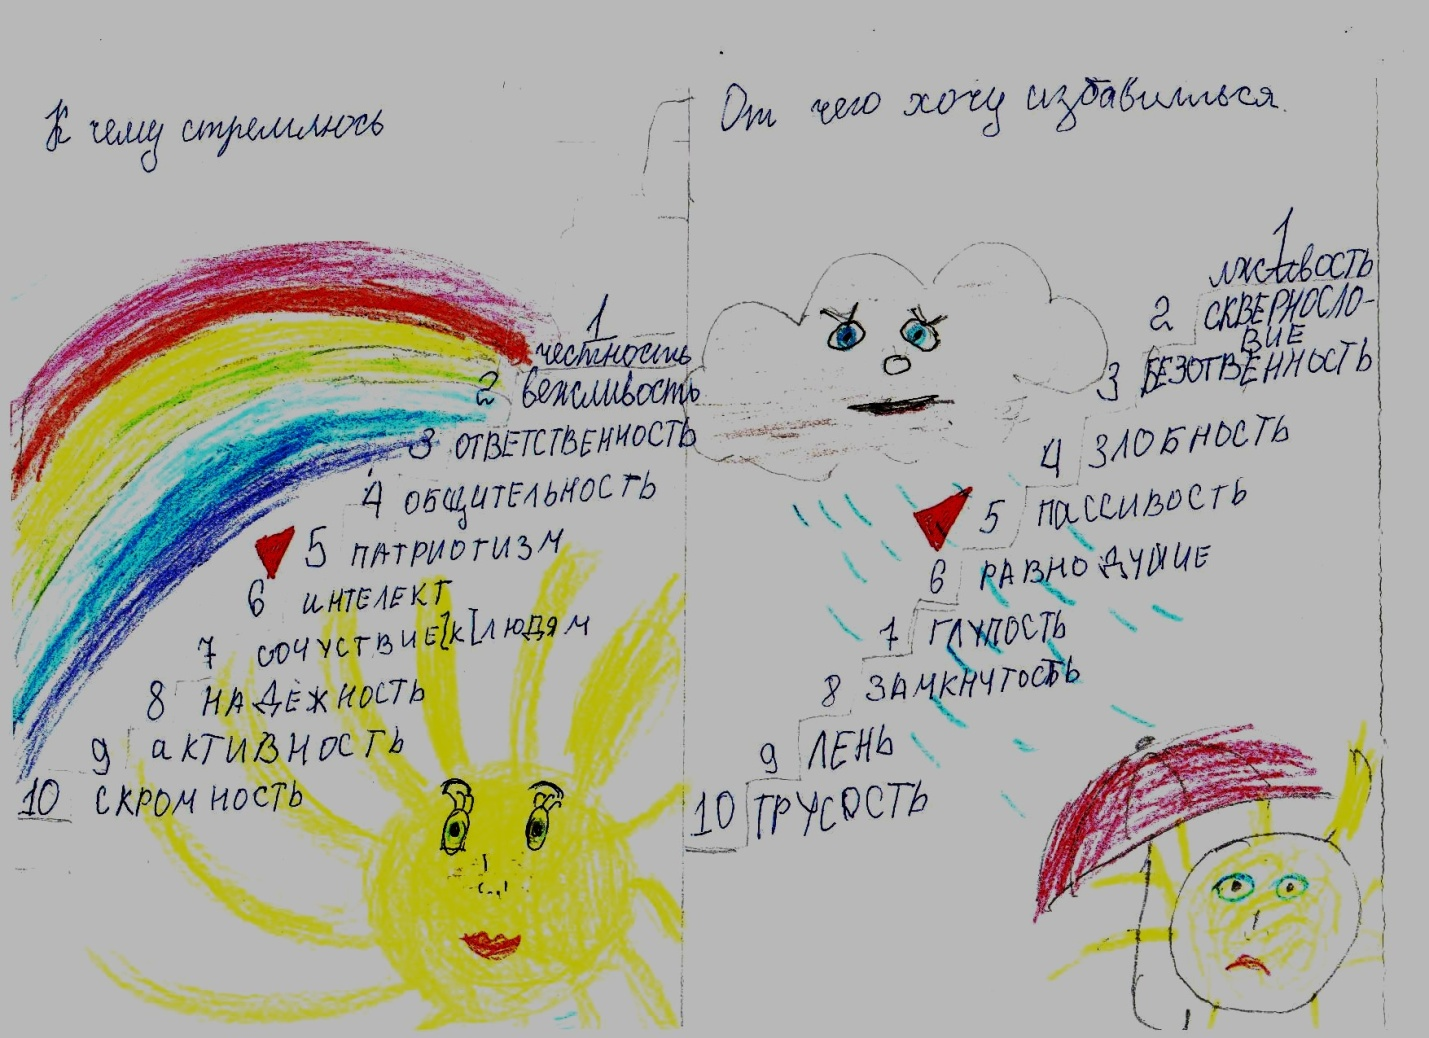 К чему стремлюсь
1
честность
2 вежливость
3 ОТВЕТСТВЕННОСТЬ
4 ОБЩИТЕЛЬНОСТЬ
5 ПАТРИОТИЗМ
6 ИНТЕЛЕКТ
7 СОЧУСТВИЕ[К[ЛЮДЯМ
8 НАДЁЖНОСТЬ
9 аКТИВНОСТЬ
10 СКРОМНОСТЬ
От чего хочу избавиться.
1
лживость
2 СКВЕРНОСЛО-
ВИЕ
3 БЕЗОТВЕННОСТЬ
4 ЗЛОБНОСТЬ
5 ПАССИВОСТЬ
6 РАВНОДУШИЕ
7 ГЛУПОСТЬ
8 ЗАМКНУТОСТЬ
9 ЛЕНЬ
10 ТРУСОСТЬ